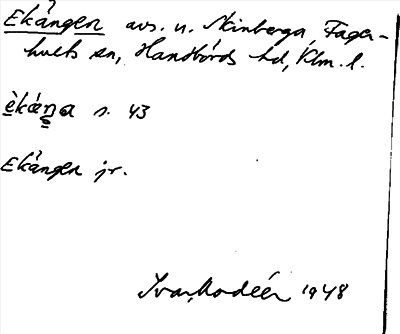 Ekången avs. u. Skinberga, Fager-
hults sn, Handbörds hd, Klm. l.
èkáŋa s. 43
Ekången jr.
Ivar Modéer 1948